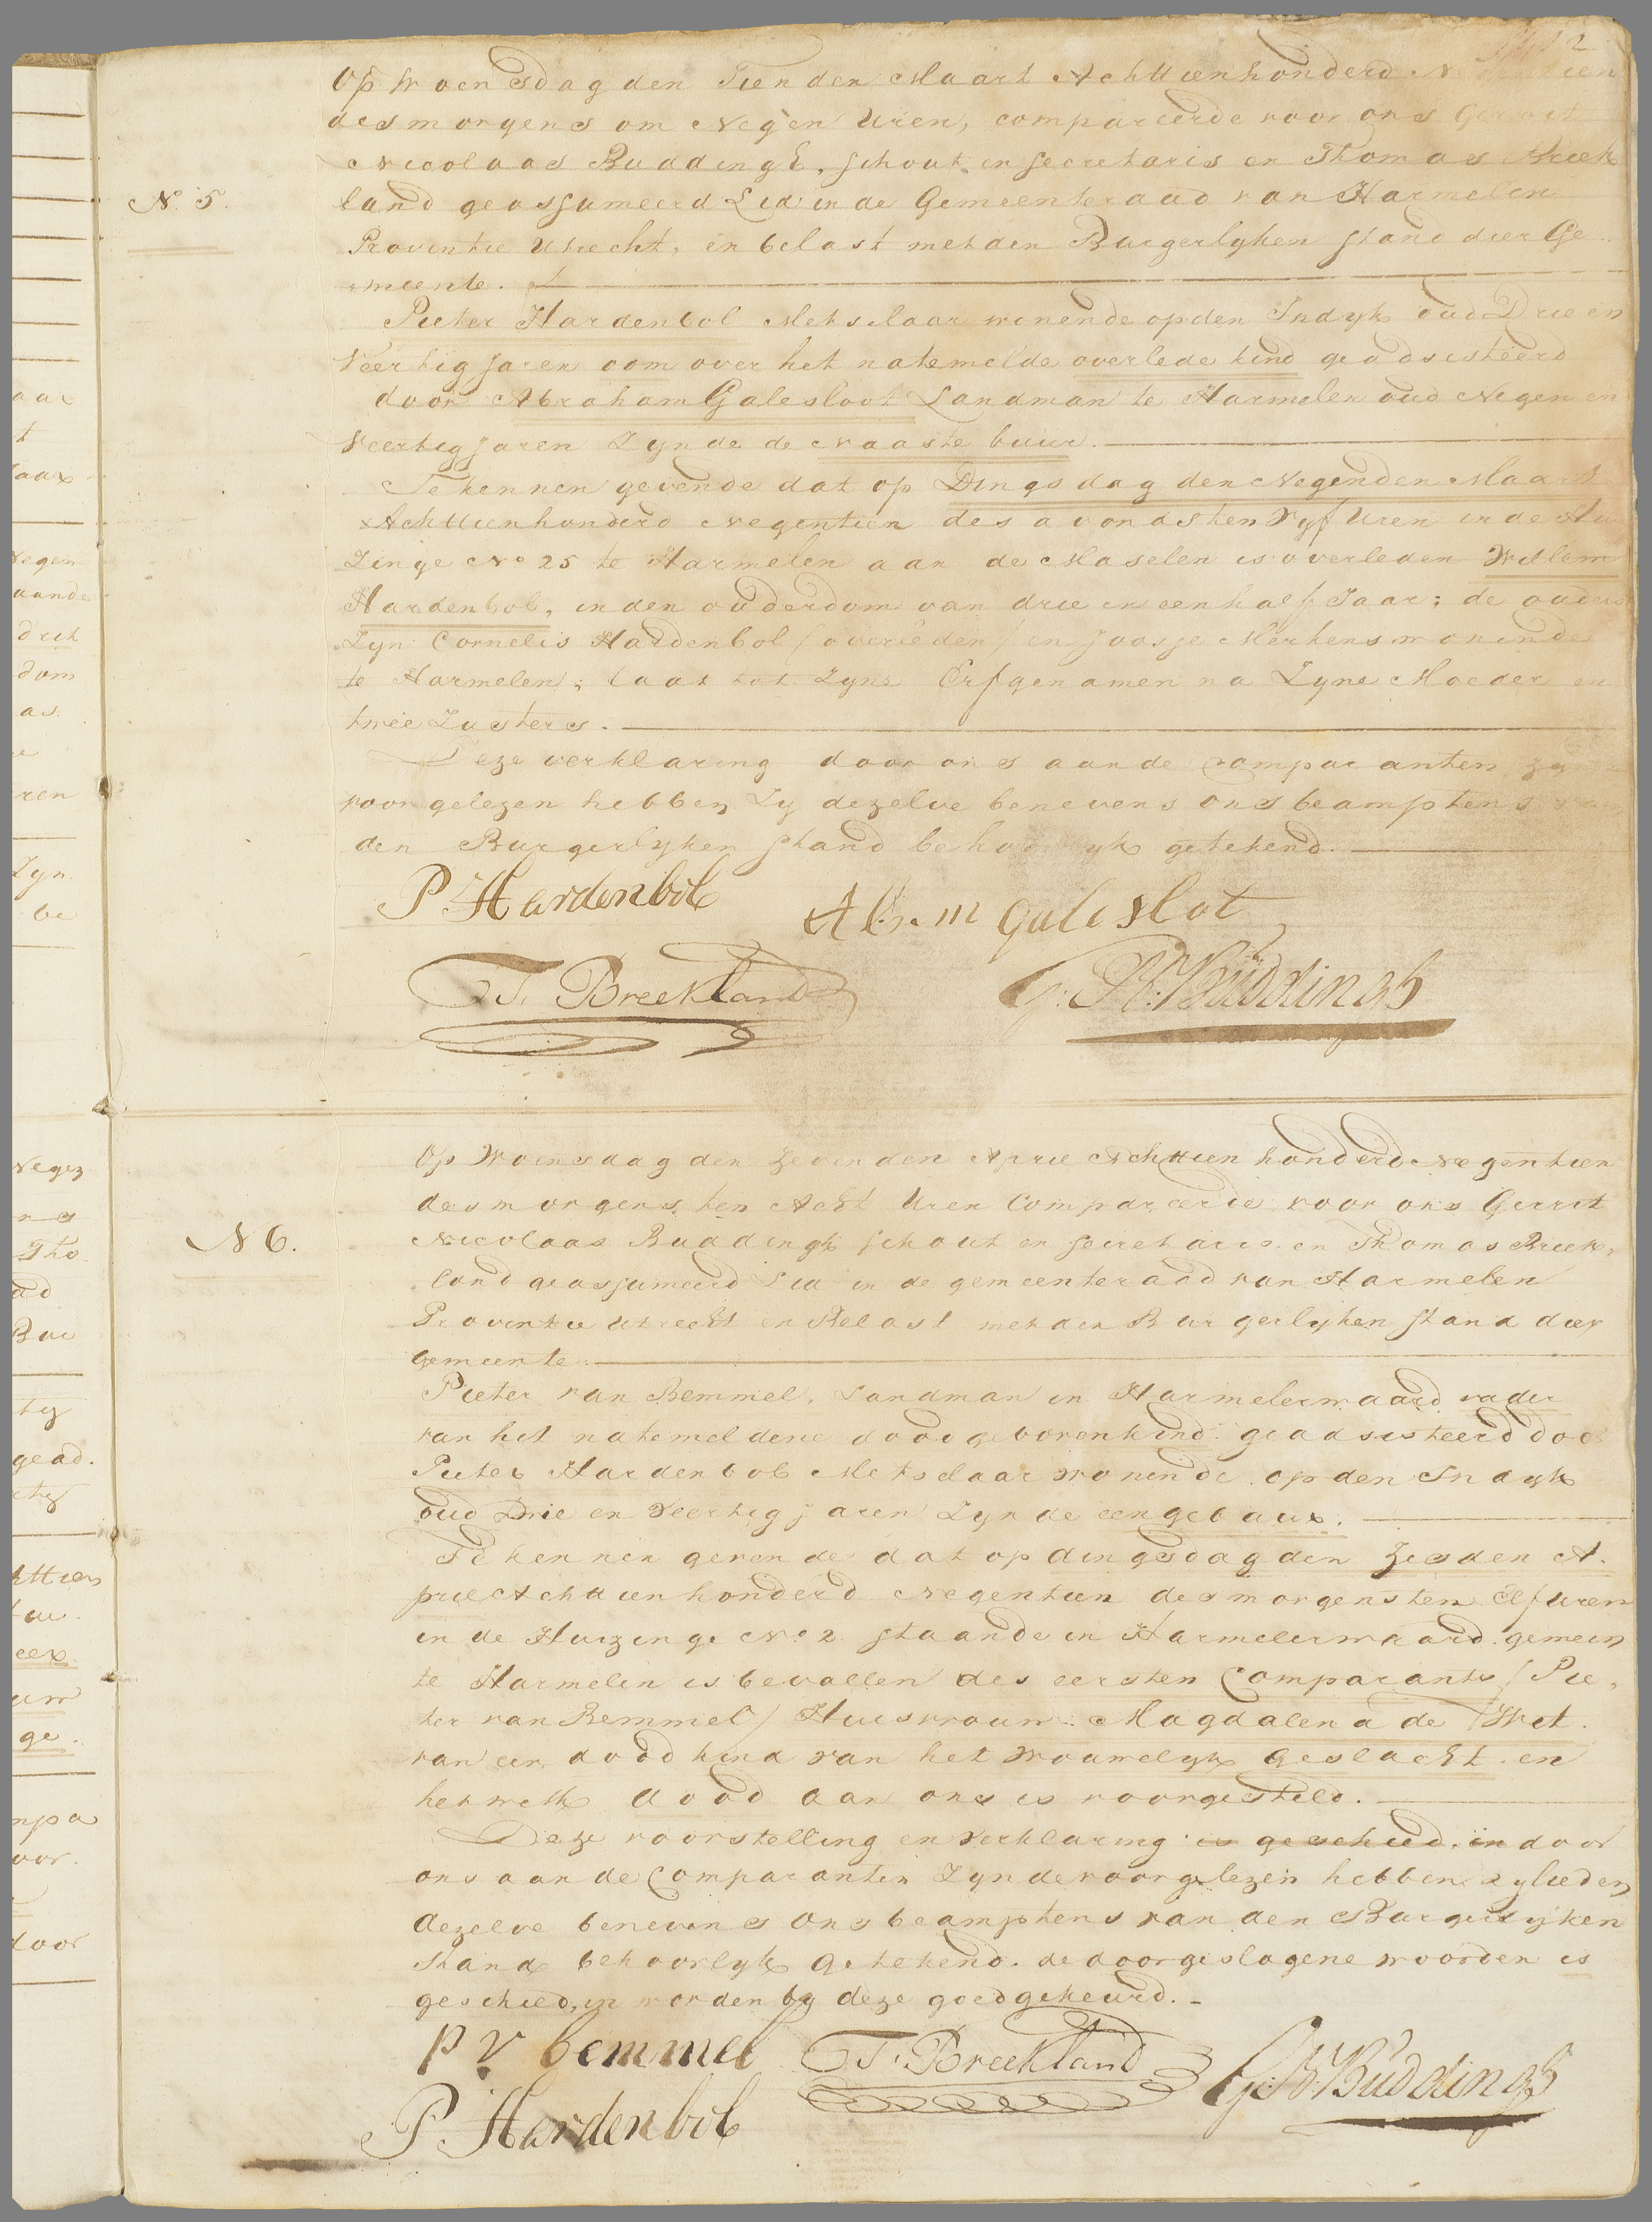 Op Woensdag den Tienden Maart Achttienhonderd
des morgens om Negen Uren, compareerde voor ons Gerrit
Nicolaas Buddingh, schout en secretaris en Thomas Breek
land geassumeerd Lid in de Gemeenteraad van Harmelen
N.o 5.
Provintie Utrecht, en belast met den Burgerlyken stand dier Ge
meente.
Pieter Hardenbol Metselaar wonende op den Indyk oud Drie en
Veertig jaren oom over het natemelde overlede kind geadsisteerd
door Abraham Galesloot Landman te Harmelen oud Negen en
Veertig jaren Zynde de naaste buur.
Te kennen gevende dat op Dingsdag den Negenden Maart
Achttienhonderd Negentien des avonds ten Vyf Uren in de Hu
Zinge No 25 te Harmelen aan de Maselen is overleden Willem
Hardenbol, in den ouderdom van drie en een half Jaar; de ouders
Zyn Cornelis Hardenbol / overleden / en Joosje Merkens wonende
te Harmelen; laat tot Zyne Erfgenamen na Zyne Moeder en
twee Zusters.
Deze verklaring door ons aan de Comparanten
voorgelezen hebben Zy dezelve benevens ons beamptens van
den Burgerlyken stand behoorlyk getekend.
P Hardenbol Abr.m Galeslot
T. Breekland G: N: Buddingh
Op Woensdag den Zevenden April Achttienhonderd Negentien
des morgens ten Acht Uren Compareerde voor ons Gerrit
Nicolaas Buddingh schout en secretaris en Thomas Breek,
N 6.
land geassumeerd Lid in de gemeenteraad van Harmelen
Provintie Utrecht en Belast met den Burgerlyken stand dier
gemeente
Pieter van Bemmel, Landman in Harmelerwaard vader
van het natemeldene doodgeboren kind geadsisteerd door
Pieter Hardenbol Metselaar wonende op den Indyk
oud Drie en Veertig jaren Zynde een gebuur.
Te kennen gevende dat op dingsdag den Zesden A.
pril Achttienhonderd Negentien des morgens ten Elf uren
in de Huizinge No 2 staande in Harmelerwaard gemeen
te Harmelen is bevallen des eersten Comparants / Pie,
ter van Bemmel / Huisvrouw Magdalena de Wit
van een dood kind van het Vrouwelyk geslacht en
hetwelk dood aan ons is voorgesteld.
Deze voorstelling en verklaring is geschied. en door
ons aan de Comparanten Zynde voorgelezen hebben zylieden
dezelve benevens ons beamptens van den Burgerlyken
stand behoorlyk getekend. de doorgeslagene woorden is
geschied, en worden by deze goedgekeurd. -
P V bemmel T. Breekland G: N: Buddingh
P. Hardenbol